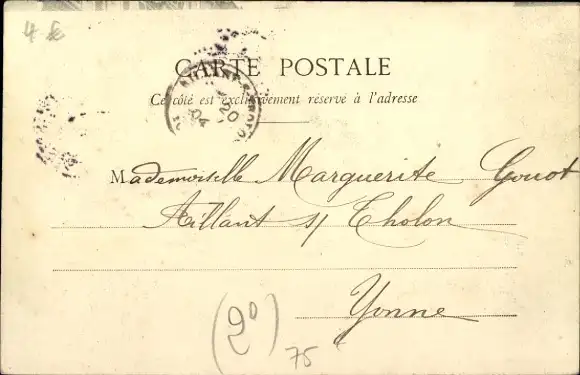 4 fc
CARTE POSTALE
Ce côté est exclusivement réservé à l'adresse
20
04
Mademoiselle Marguerite Gouot
Aillant s/ Tholon
Yonne
(2°)
75